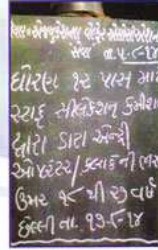 સેવા તા.૫-૯-૧૪
ધોરણ ૧૨ પાસ માટે
સ્ટાફ સીલેકશન કમીશન
દ્વારા ડાટા એન્ટ્રી
ઓપરેટર/કલાર્કની ભરતી
ઉંમર ૧૮ થી ૨૭ વર્ષ
છેલ્લી તા. ૧૭-૯-૧૪